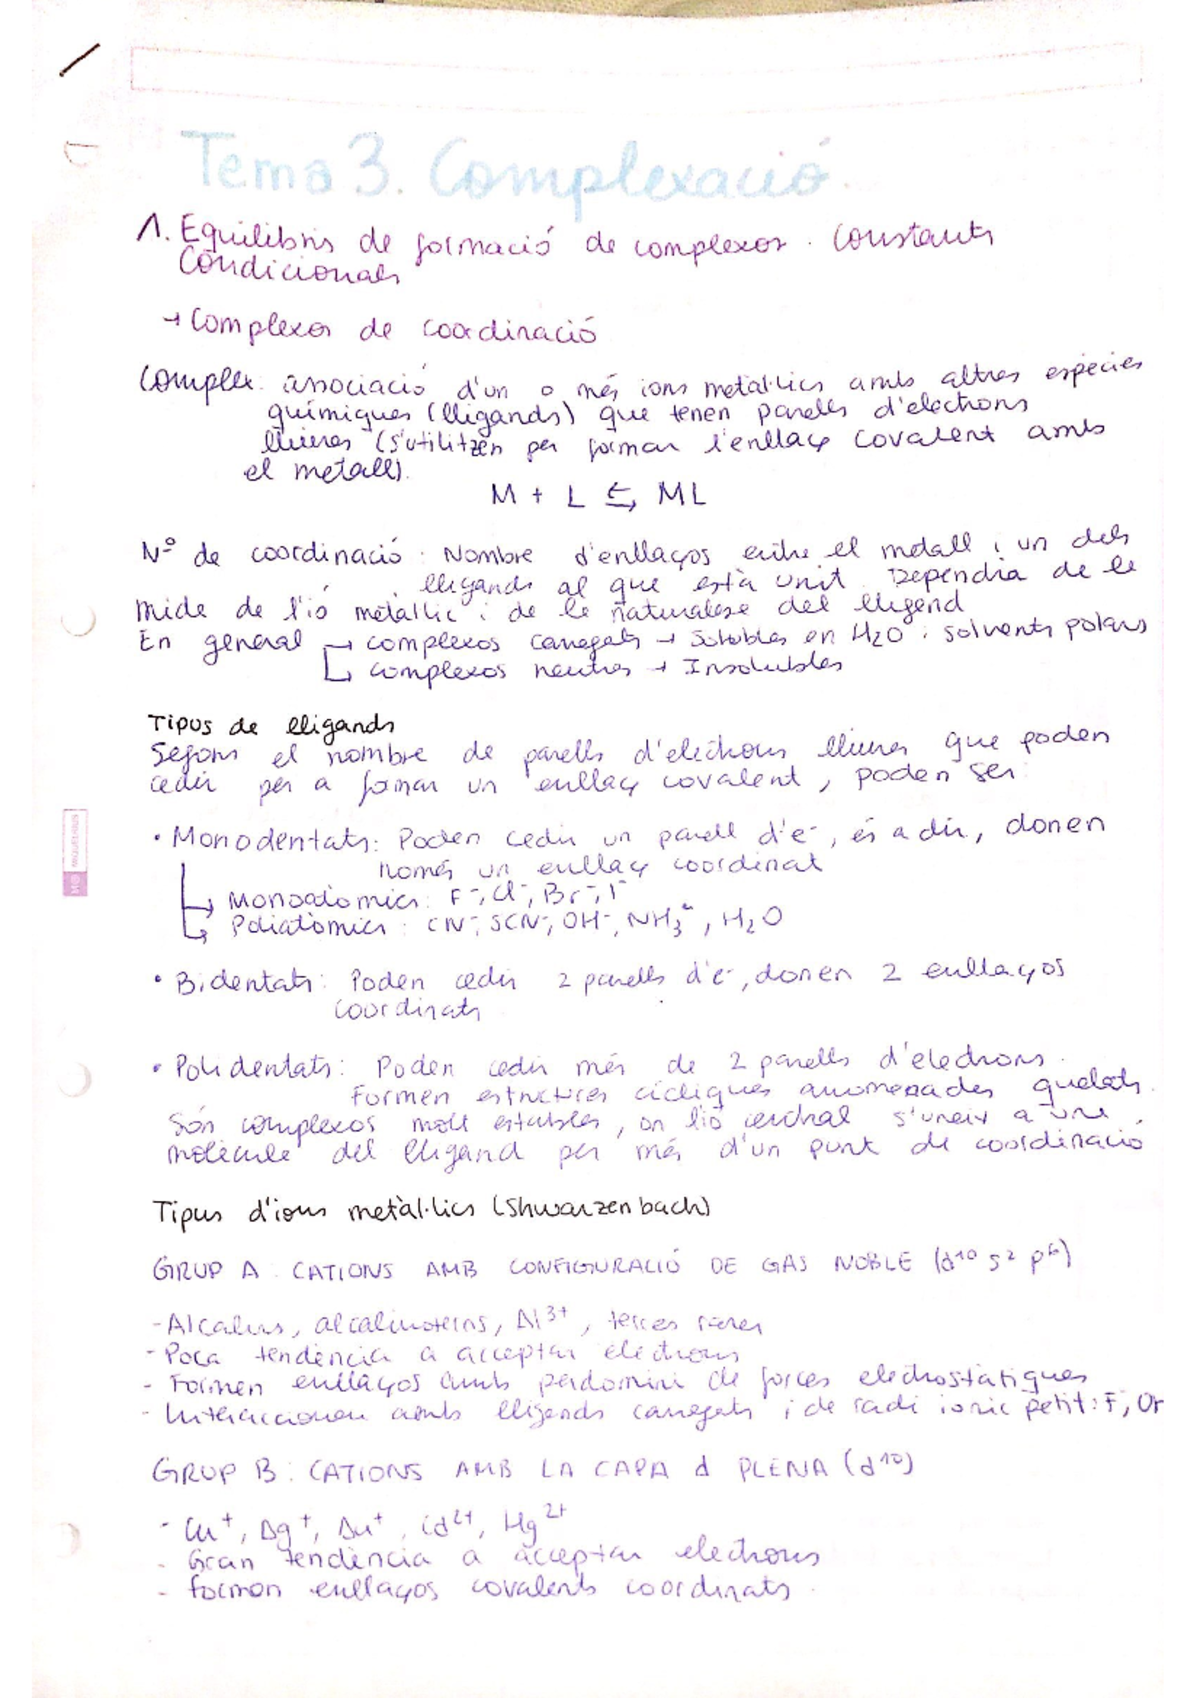 Tema 3. Complexació.
1. Equilibris de formació de complexos. Constants
Condicionals
→ Complexos de coordinació
Complex: associació d'un o més ions metal·lics amb altres espècies
químiques (lligands) que tenen parells d'electrons
lliures (s'utilitzen per formar l'enllaç covalent amb
el metall).
M + L ⇆ ML
Nº de coordinació: Nombre d'enllaços entre el metall i un dels
lligands al que està unit. Dependrà de la
mida de l'ió metàl·lic i de la naturalesa del lligand
En general → complexos carregats → Solubles en H2O i solvents polars
↳ complexos neutres → Insolubles
Tipus de lligands
Segons el nombre de parells d'electrons lliures que poden
cedir per a formar un enllaç covalent, poden ser:
• Monodentats: Poden cedir un parell d'e-, és a dir, donen
només un enllaç coordinat
↳ Monoatòmics: F-, Cl-, Br-, I-
↳ Poliatòmics: CN-, SCN-, OH-, NH3, H2O
• Bidentats: Poden cedir 2 parells d'e-, donen 2 enllaços
coordinats
• Polidentats: Poden cedir més de 2 parells d'electrons.
Formen estructures cícliques anomenades quelats.
Són complexos molt estables, on l'ió central s'uneix a una
molècula del lligand per més d'un punt de coordinació
Tipus d'ions metàl·lics (Shwarzenbach)
GRUP A: CATIONS AMB CONFIGURACIÓ DE GAS NOBLE (d10 s2 p6)
- Alcalins, alcalinoterris, Al3+, terres rares
- Poca tendència a acceptar electrons
- Formen enllaços amb predomini de forces electrostàtiques
- Interaccionen amb lligands carregats i de radi iònic petit: F-,
GRUP B: CATIONS AMB LA CAPA d PLENA (d10)
- Cu+, Ag+, Au+, Cd2+, Hg2+
- Gran tendència a acceptar electrons
- formen enllaços covalents coordinats.
MIQUELRIUS